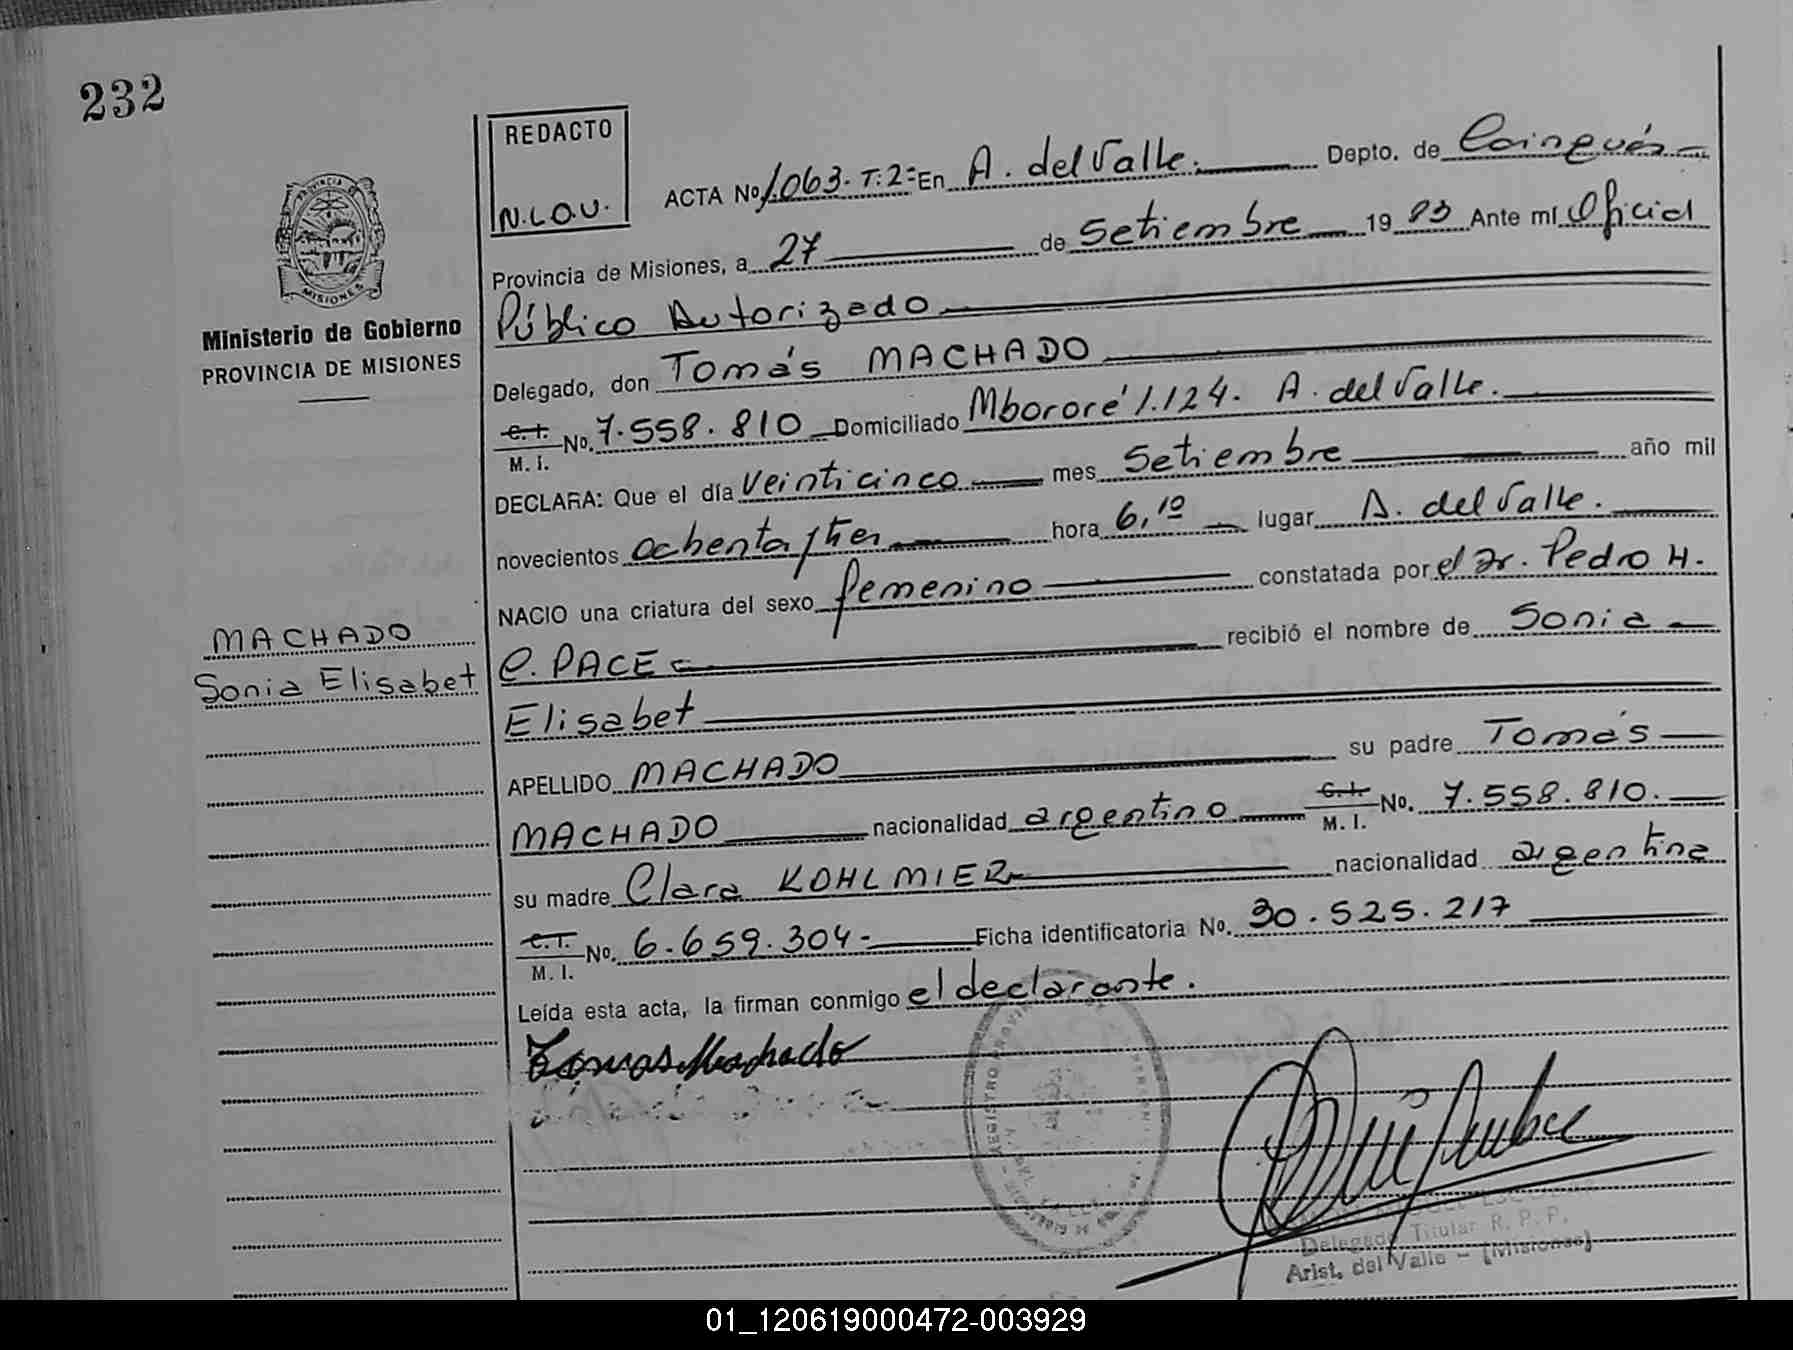 232
REDACTO
N.L.O.U.
ACTA No 1.063. T:2= En A. del Valle. Depto. de Cainguás
Provincia de Misiones, a 27 de Setiembre 1983 Ante mí Oficial
Público Autorizado
Delegado, don Tomás MACHADO
C.I. M.I. No. 7.558.810 Domiciliado Mbororé 1.124. A. del Valle.
DECLARA: Que el día veinticinco mes Setiembre año mil
novecientos ochenta y tres hora 6,10 lugar A. del Valle.
NACIO una criatura del sexo femenino constatada por el Dr. Pedro H.
C. PACE recibió el nombre de Sonia
Elisabet
APELLIDO MACHADO su padre Tomás
MACHADO nacionalidad argentino C.I. M.I. No. 7.558.810.
su madre Clara KOHLMIER nacionalidad argentina
C.I. M.I. No. 6.659.304- Ficha identificatoria No. 30.525.217
Leída esta acta, la firman conmigo el declarante.
Tomas Machado
PROVINCIA DE
MISIONES
Ministerio de Gobierno
PROVINCIA DE MISIONES
MACHADO
Sonia Elisabet
Delegado Titular R. P. P.
Arist. del Valle - (Misiones)
01_120619000472-003929